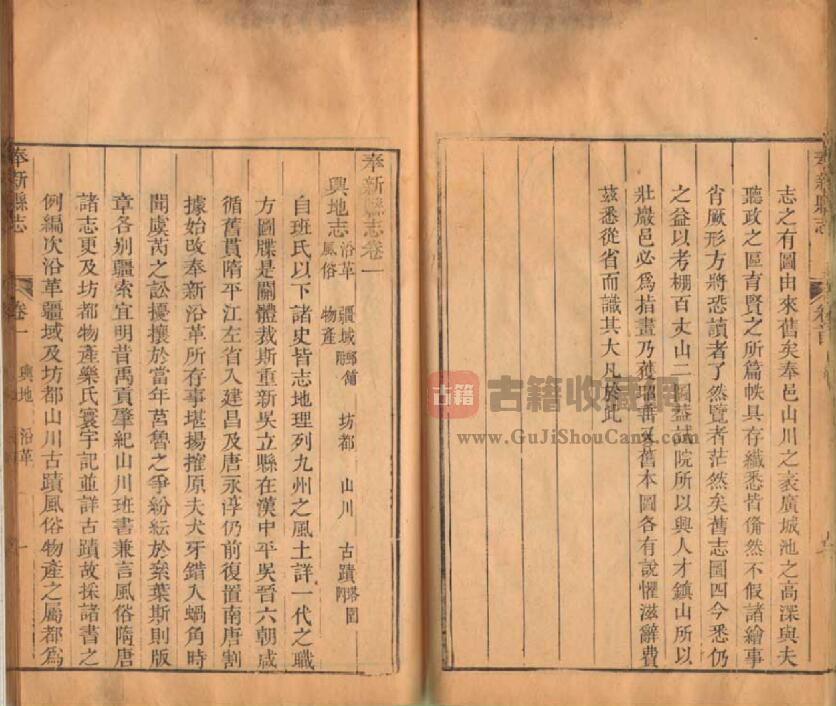 志之有圖由來舊矣奉邑山川之袤廣城池之高深與夫
聽政之區育賢之所篇帙具存纖悉皆僃然不假諸繪事
肖厥形方將恐讀者了然覽者茫然矣舊志圖四今悉仍
之益以考棚百丈山二圖益試院所以興人才鎮山所以
壯巖邑必爲指畫乃獲
舊本圖各有說懼滋辭費
茲悉從省而識其大凡於此
奉新縣志
奉新縣志卷一
輿地志 沿革 疆域 坊都 山川 古蹟
風俗 物產
自班氏以下諸史皆志地理列九州之風土詳一代之職
方圖牒是關體裁斯重新吳立縣在漢中平吳晉六朝咸
循舊貫隋平江左省入建昌及唐永淳仍前復置南唐割
據始改奉新沿革所存事堪揚搉原夫犬牙錯入蝸角時
聞虞芮之訟擾攘於當年莒魯之爭紛紜於柰葉斯則版
章各別疆索宜明昔禹貢肇紀山川班書兼言風俗隋唐
諸志更及坊都物產樂氏寰宇記並詳古蹟故採諸書之
例編次沿革疆域及坊都山川古蹟風俗物產之屬都爲
奉新縣志
卷一
輿地 沿革
一
古籍 古籍收藏網
www.GuJiShouCang.com